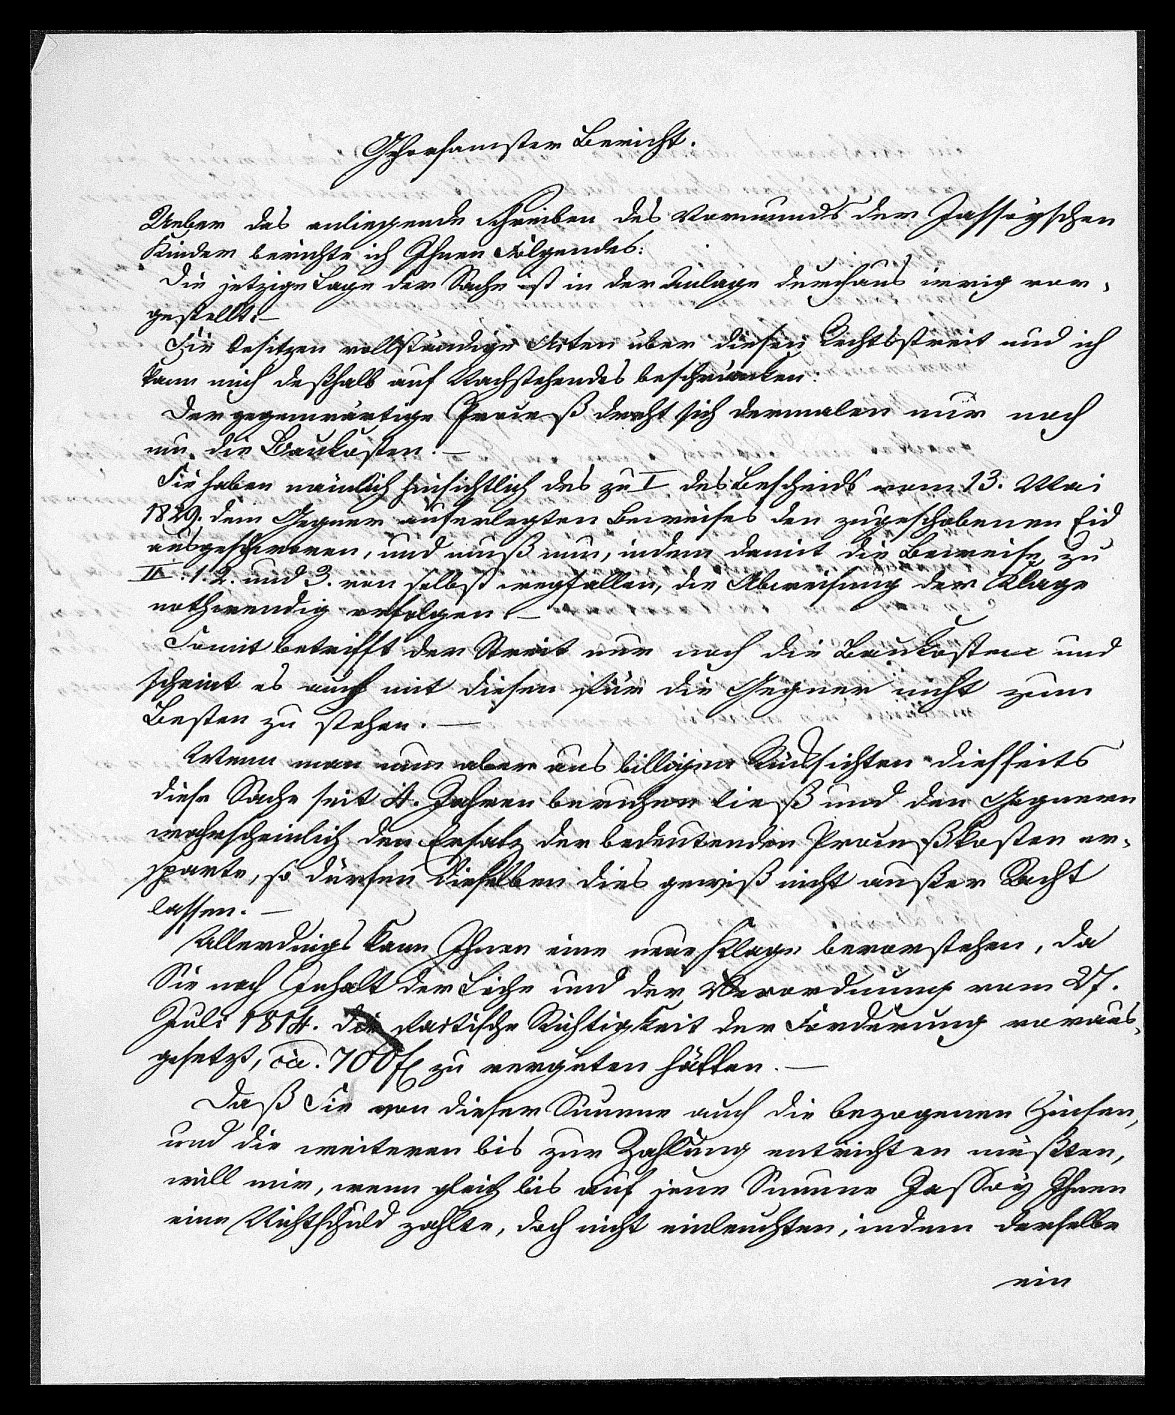 Gehorsamster Bericht.
Ueber das anliegende Schreiben des Vormunds der Jassoyschen
Kinder berichte ich Ihnen Folgendes:
Die jetzige Lage der Sache ist in der Anlage durchaus irrig vor-
gestellt. –
Sie besitzen vollständige Acten über diesen Rechtsstreit und ich
kann mich deßhalb auf Nachstehendes beschränken:
Der gegenwärtige Proceß dreht sich dermalen nur noch
um die Baukosten. –
Sie haben nämlich hinsichtlich des zu I des Bescheids vom 13. Mai
1829. dem Gegner auferlegten Beweises den zugeschobenen Eid
ausgeschworen, und muß nur, indem damit die Beweise zu
II. 1. 2. und 3. von selbst wegfallen, die Abweisung der Klage
nothwendig erfolgen. –
Somit betrifft der Streit nur noch die Baukosten und
scheint es auch mit diesen für die Gegner nicht zum
Besten zu stehen. –
Wenn man nun aber aus billigen Rücksichten diesseits
diese Sache seit 4. Jahren beruhen ließ und den Gegnern
wahrscheinlich den Ersatz der bedeutenden Proceßkosten er-
sparte, so dürfen dieselben dies gewiß nicht außer Acht
lassen. –
Allerdings kann Ihnen eine neue Klage bevorstehen, da
Sie nach Inhalt der und der Verordnung vom 27.
Juli 1814. die factische Richtigkeit der Forderung voraus-
gesetzt, ca. 700 f zu vergüten hätten. –
Daß Sie von dieser Summe auch die bezogenen Zinsen,
und die weiteren bis zur Zahlung entrichten müßten,
will mir, wenn gleich bis auf jene Summe Jassoy Ihnen
eine Nichtschuld zahlte, doch nicht einleuchten, indem derselbe
ein